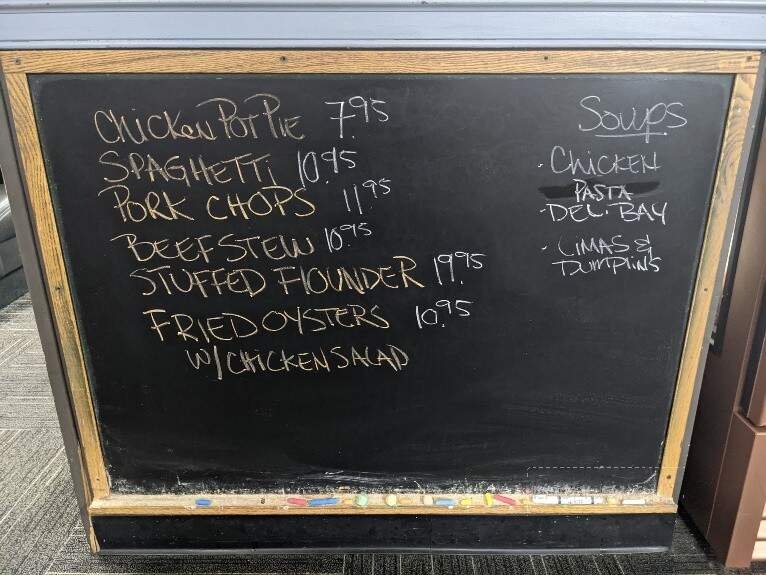 Chicken Pot Pie 7.95
SPAGHETTi 10.95
PORK CHOPS 11.95
BEEF STEW 10.95
STUFFED FlOUNDER 19.95
FRIED OYSTERS 10.95
W/CHICKEN SALAD
Soups
· CHICKEN
PASTA
· DEL. BAY
· LIMAS &
DUMPLINS